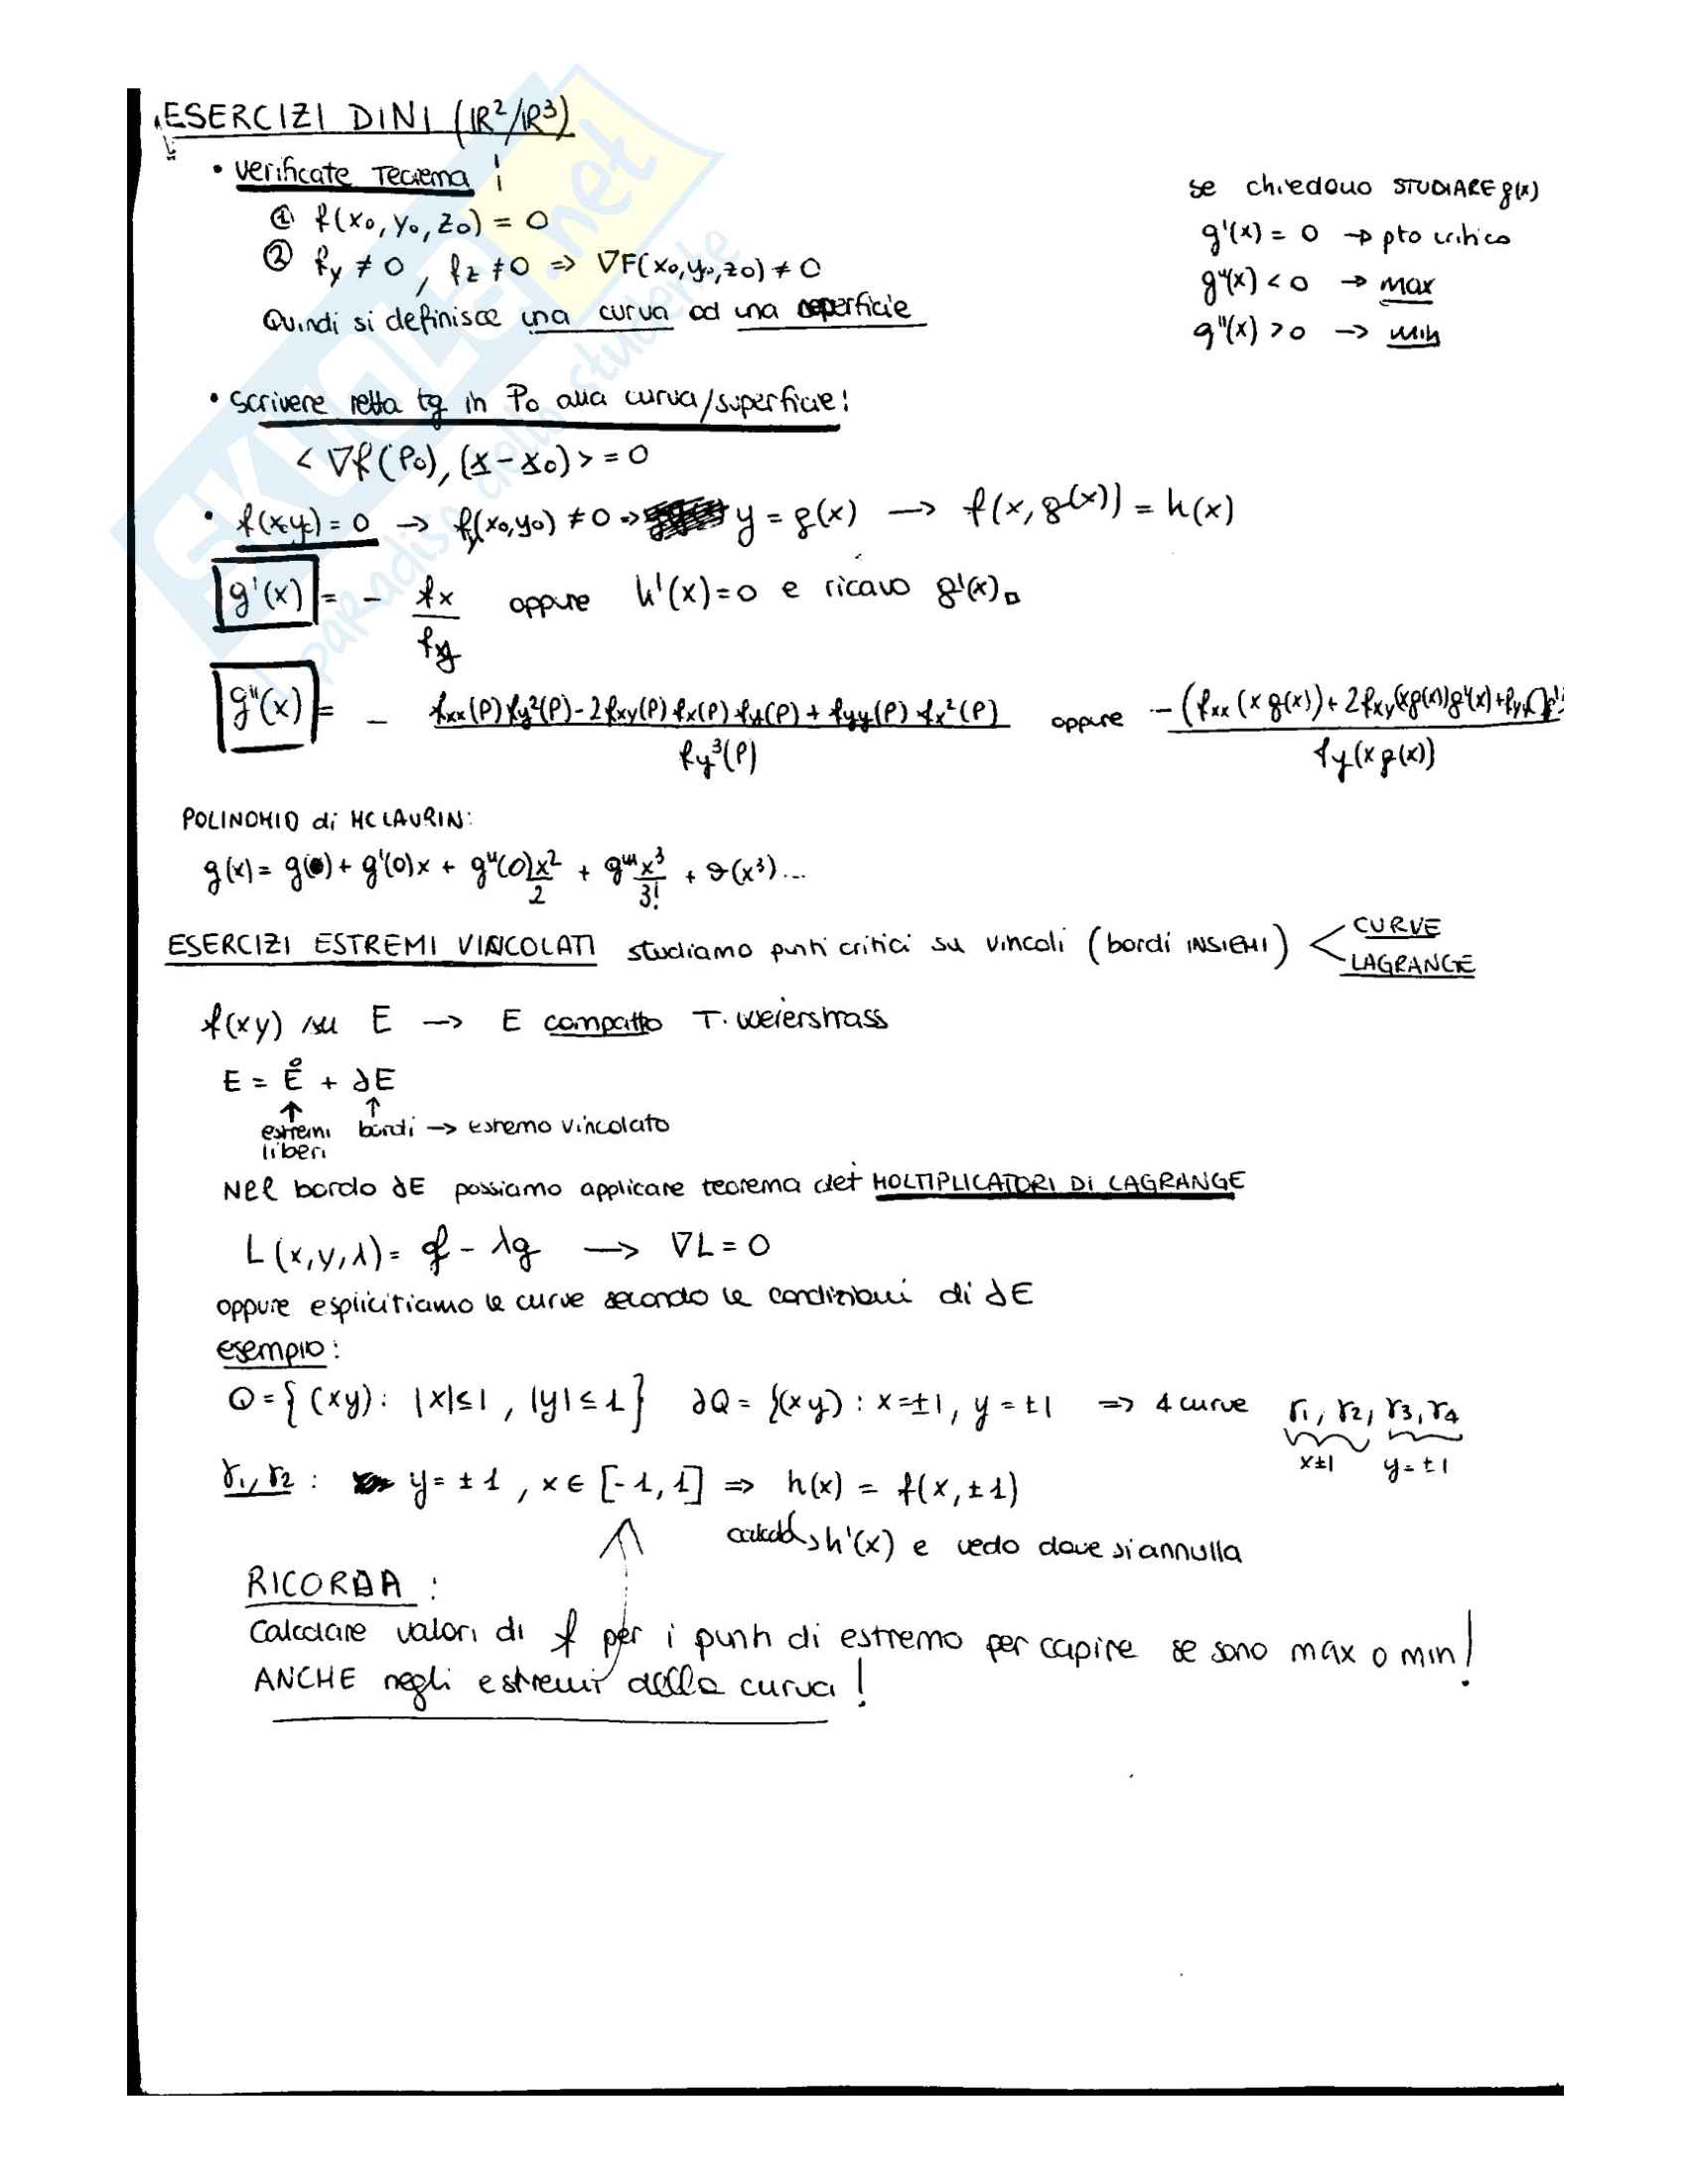 ESERCIZI DINI (ℝ²/ℝ³)
• verificate Teorema !
① f(x₀, y₀, z₀) = 0
② fy ≠ 0 , fz ≠ 0 => ∇F(x₀, y₀, z₀) ≠ 0
Quindi si definisce una curva od una superficie
se chiedono STUDIARE g(x)
g'(x) = 0 → pto critico
g''(x) < 0 → max
g''(x) > 0 → min
• scrivere retta tg in P₀ alla curva/superficie:
< ∇f(P₀), (x - x₀) > = 0
• f(x,y) = 0 → fy(x₀,y₀) ≠ 0 => y = g(x) → f(x, g(x)) = h(x)
g'(x) = - fx / fy oppure h'(x) = 0 e ricavo g'(x).
g''(x) = - fxx(P) fy²(P) - 2fxy(P) fx(P) fy(P) + fyy(P) fx²(P) / fy³(P) oppure -(fxx (x g(x)) + 2fxy(x g(x)) g'(x) + fyy / fy(x g(x))
POLINOMIO di MCLAURIN:
g(x) = g(0) + g'(0)x + g''(0)x²/2 + g'''x³/3! + o(x³)...
ESERCIZI ESTREMI VINCOLATI studiamo punti critici su vincoli (bordi INSIEMI) < CURVE
LAGRANGE
f(xy) su E → E compatto T. Weierstrass
E = E̊ + ∂E
↑ ↑
estremi bordi → estremo vincolato
liberi
Nel bordo ∂E possiamo applicare teorema dei MOLTIPLICATORI DI LAGRANGE
L(x,y,λ) = f - λg → ∇L = 0
oppure esplicitiamo le curve secondo le condizioni di ∂E
esempio:
Q = { (xy) : |x| ≤ 1 , |y| ≤ 1 } ∂Q = {(xy) : x = ±1, y = ±1 => 4 curve γ₁, γ₂, γ₃, γ₄
x±1 y = ±1
γ₁, γ₂ : y = ±1 , x ∈ [-1, 1] => h(x) = f(x, ±1)
calcolo h'(x) e vedo dove si annulla
RICORDA :
Calcolare valori di f per i punti di estremo per capire se sono max o min!
ANCHE negli estremi della curva!
SKUOLA.net
il paradiso dello studente